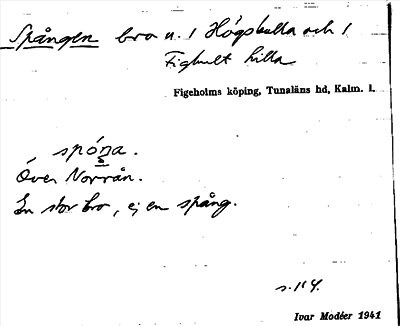 Spången bro u. 1 Högskulla och 1
Fighult Lilla
Figeholms köping, Tunaläns hd, Kalm. l.
spóŋa.
Över Norrån.
En stor bro, ej en spång.
s. 114.
Ivar Modéer 1941